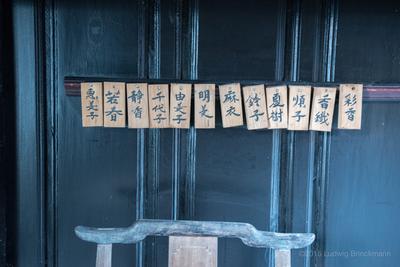 恵美子
若春
静香
千代子
由美子
明美
麻衣
鈴子
夏樹
順子
香織
彩香
©2015 Ludwig Brinckmann